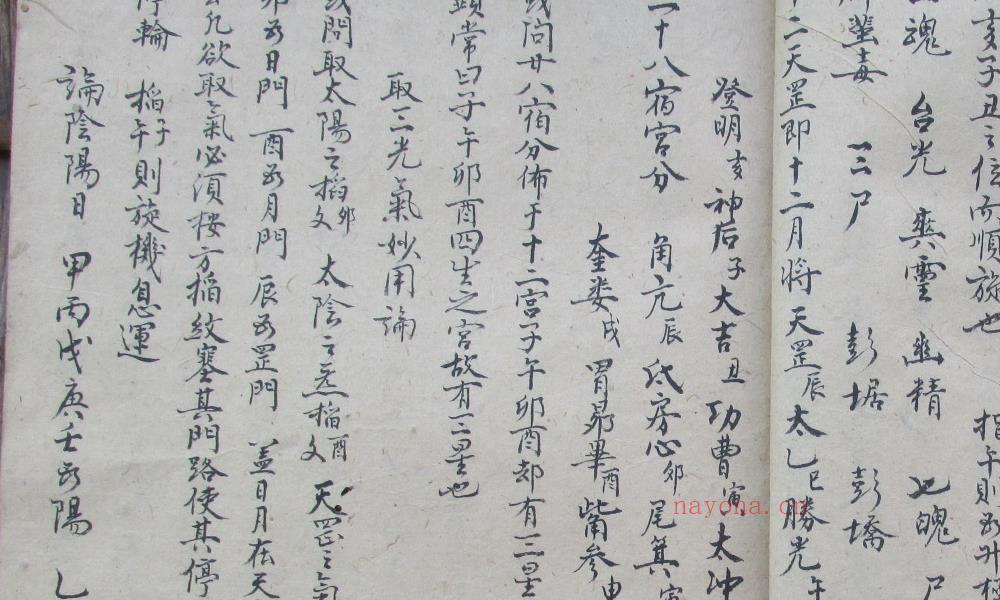 亥子丑之位而順旋也 指午則為升
魂 台光 爽靈 幽精 七魄 尸
毒 三尸 彭琚 彭壔
十二天罡即十二月將 天罡辰 太乙巳 勝光午
登明亥 神后子 大吉丑 功曹寅 太冲
二十八宿宮分 角亢辰 氐房心卯 尾箕寅
奎娄戌 胃昴畢酉 觜參申
或问廿八宿分佈于十二宮子午卯酉却有三星
頭常曰子午卯酉四生之宮故有三星也
取三光氣妙用論
或問取太陽之 卯文 太陰之 酉文 天罡之氣
卯為日門 酉為月門 辰為罡門 盖日月在天
凡欲取氣必須按方 紋塞其門路使其停
停輪 子午則旋機息運
論陰陽日 甲丙戊庚壬為陽 乙
nayona.cn